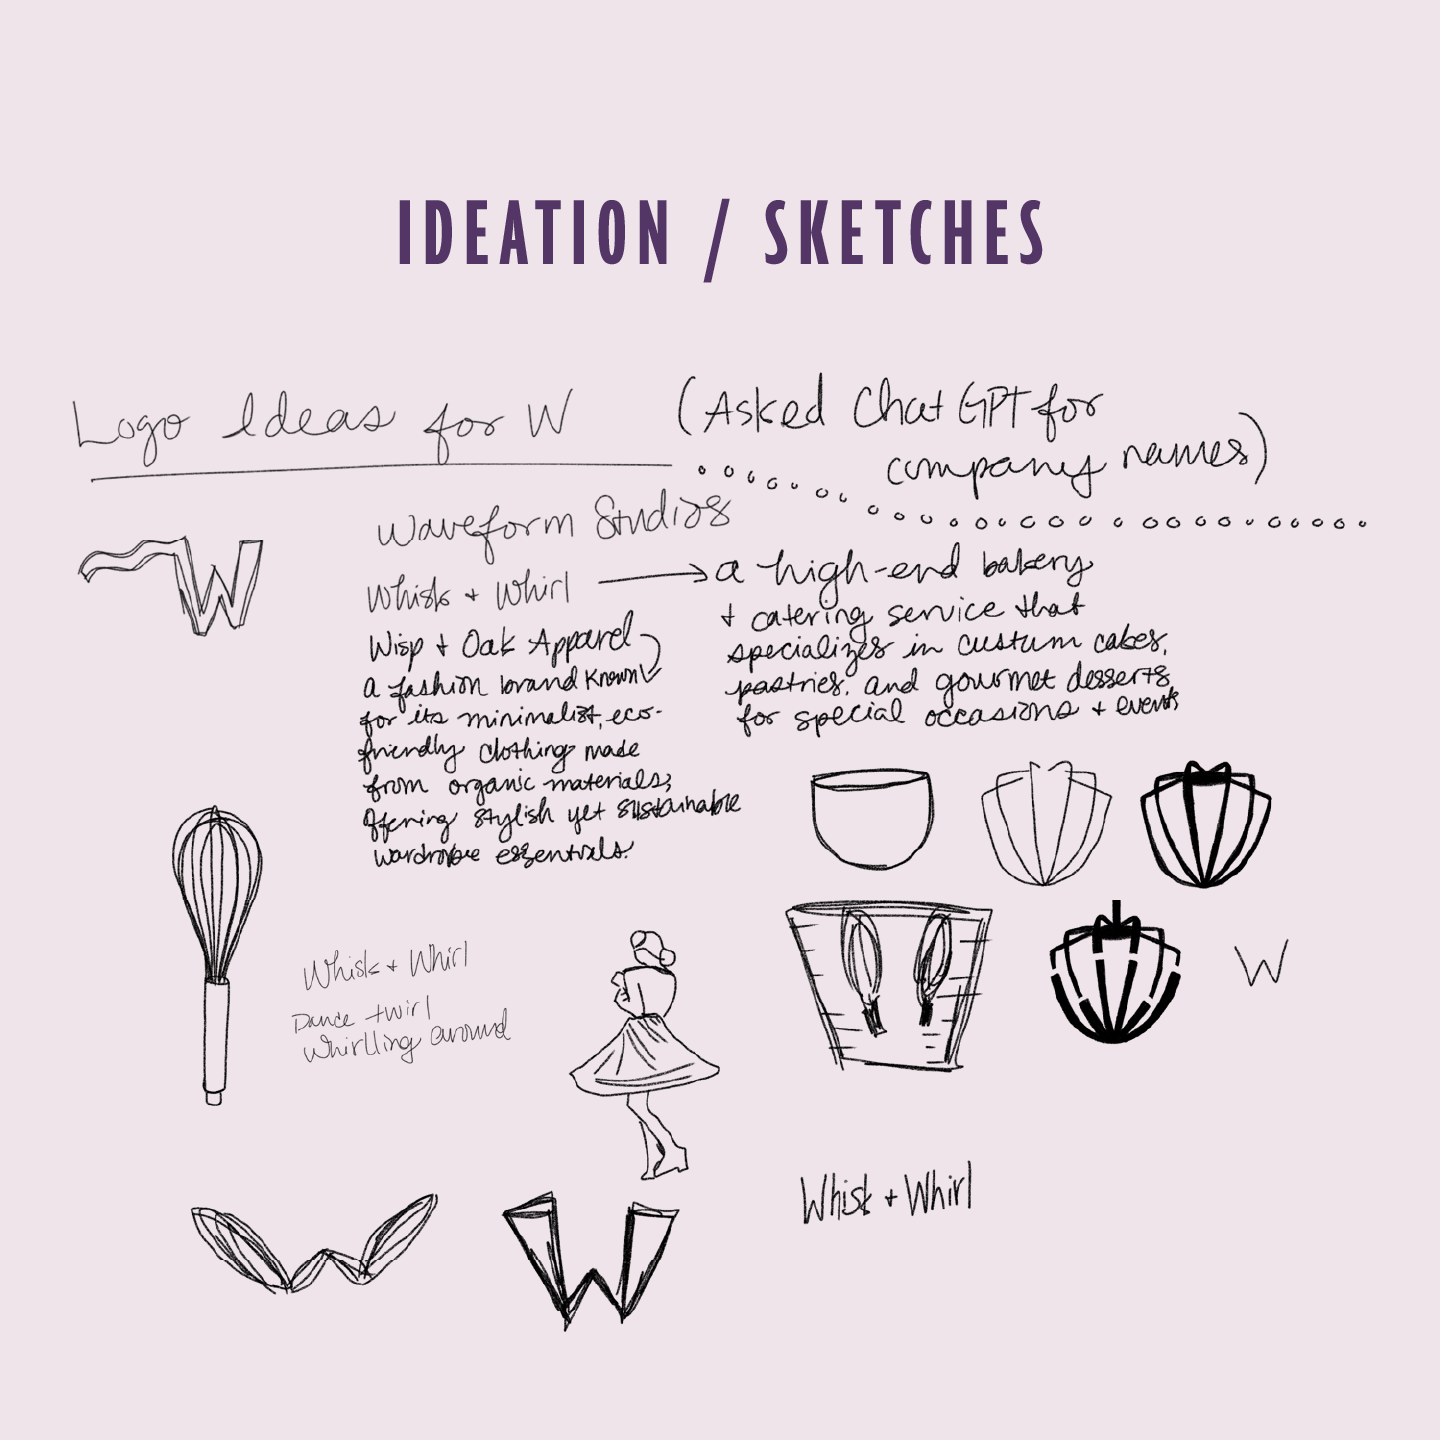 IDEATION / SKETCHES
Logo Ideas for W
(Asked Chat GPT for
company names)
Waveform Studios
W
Whisk + Whirl
a high-end bakery
+ catering service that
specializes in custum cakes,
pastries, and gourmet desserts
for special occasions + events
Wisp + Oak Apparel
a fashion brand known
for its minimalist, eco-
friendly clothing made
from organic materials,
offering stylish yet sustainable
wardrobe essentials.
W
Whisk + Whirl
Dance twirl
Whirlling around
Whisk + Whirl
W